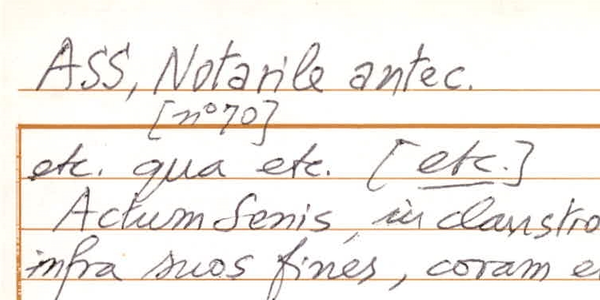 ASS, Notarile antec.
[n° 70]
etc. qua etc. [etc.]
Actum Senis, in claustro
infra suos fines, coram e